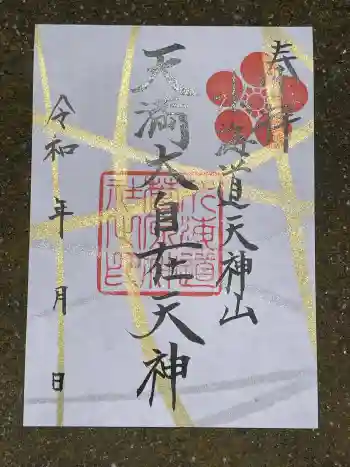 奉拝
北海道天神山
天満大自在天神
令和 年 月 日